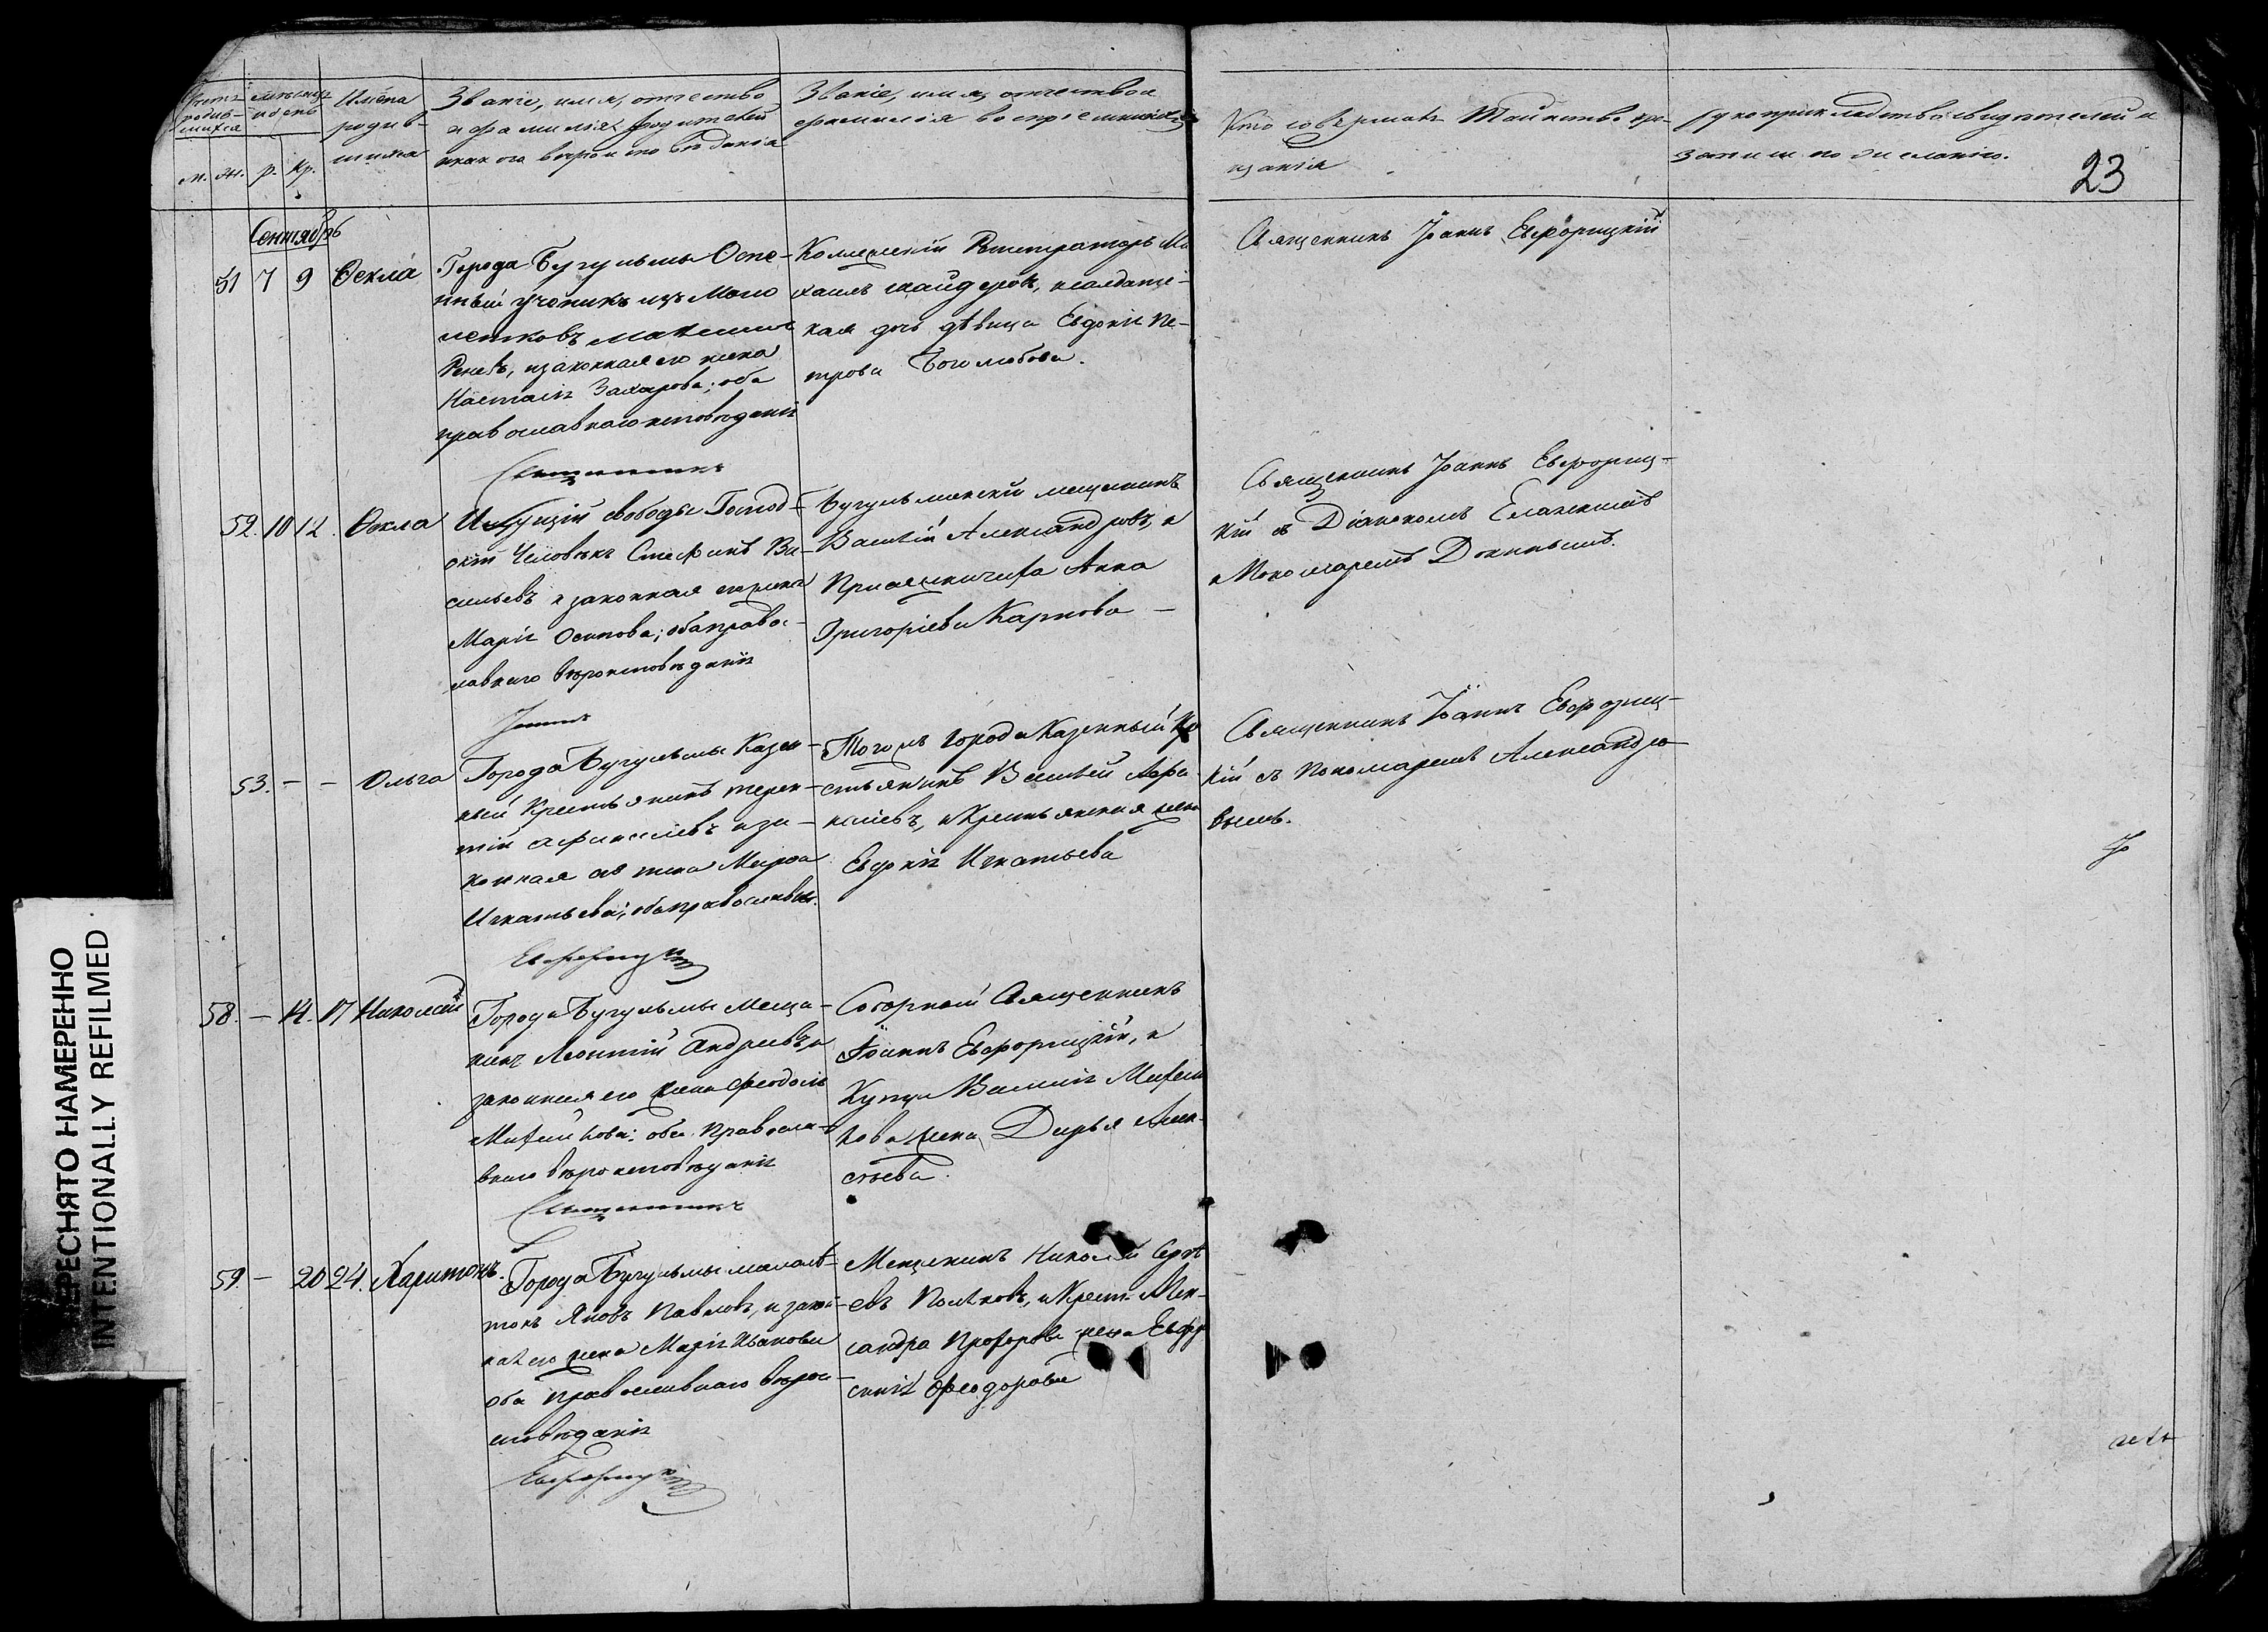 Счетъ родив-шихся
мѣсяцъ и день
Имена родив-шихся
Званіе, имя, отчество
и фамилія родителей
и какого вѣроисповѣданія
Званіе, имя, отчество и
фамилія воспріемниковъ
Кто совершалъ Таинство кре-
щенія
Рукоприкладство свидѣтелей и
записи по желанію.
23
м. ж. р. кр.
Сентябрь
51 7 9 Ѳекла
Города Бугульмы
ученикъ изъ Мало
лѣтковъ
и законная его жена
Настасія Захарова; оба
православнаго исповѣданія
Коллежскій Регистраторъ Ми
хаилъ и солдатс-
кая дочь дѣвица Евдокія Пе-
трова Боголюбова.
Священникъ Іоаннъ Евфорицкій
Священникъ
52. 10 12. Ѳекла
Ищущій свободы Господ-
скій Человѣкъ Стефанъ Ва-
сильевъ и законная его жена
Марія Осипова; оба правос-
лавнаго вѣроисповѣданія
Бугульминскій мещанинъ
Василій Александровъ, и
Григоріева Карпова
Анна
Священникъ Іоаннъ Евфориц-
кій съ Діакономъ
и Пономаремъ
Іоаннъ
53. - - Ольга
Города Бугульмы Казен-
ный Крестьянинъ Терен-
тій Афанасьевъ и за-
конная его жена Марфа
Игнатьева; оба православн.
Того жъ города Казенный Кре
стьянинъ Василей Афа
насіевъ, и Крестьянская жена
Евдокія Игнатьева
Священникъ Іоаннъ Евфориц-
кій съ Пономаремъ Александро
вымъ.
Евфорицкій
58. - 14. 17 Николай
Города Бугульмы Меща-
нинъ Леонтій Андреевъ и
законная его жена Феодосія
Михайлова; оба Правосла-
внаго вѣроисповѣданія
Соборный Священникъ
Іоаннъ Евфорицкій, и
Купца Василія Михай
лова жена Дарья Алек-
сѣева.
Священникъ
59. - 20 24. Харитонъ.
Города Бугульмы малолѣ-
токъ Яковъ Павловъ, и закон-
ная его жена Марія Иванова
оба православнаго вѣрои-
сповѣданія
Мещанинъ Николай Сергѣ
евъ Поляковъ, и Крест. Алек-
сандра Прохорова жена Евфро
синія Феодорова
Евфорицкій
ПЕРЕСНЯТО НАМЕРЕННО
INTENTIONALLY REFILMED